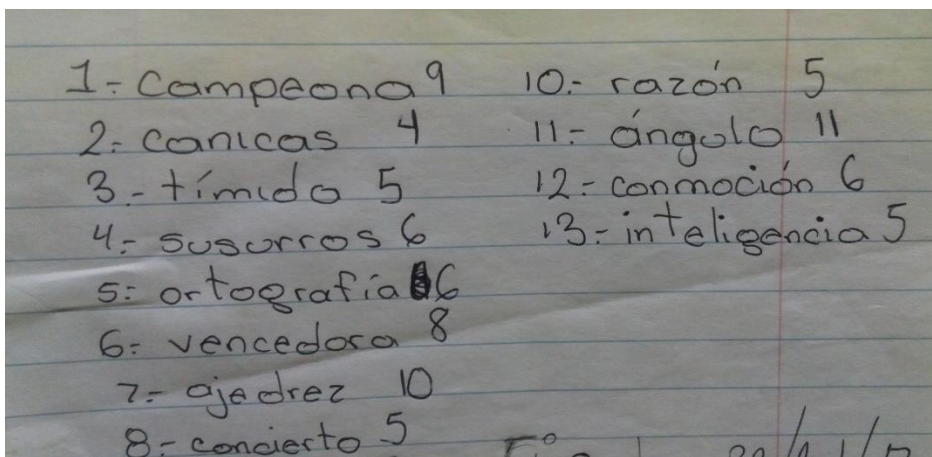 1.- Campeona 9
2.- canicas 4
3.- tímida 5
4.- susurros 6
5.- ortografía 6
6.- vencedora 8
7.- ajedrez 10
8.- concierto 5
10.- razón 5
11.- ángulo 11
12.- conmoción 6
13.- inteligencia 5